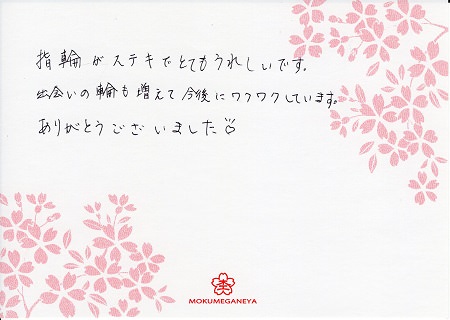 指輪がステキでとてもうれしいです。
出会いの輪も増えて今後にワクワクしています。
ありがとうございました
MOKUMEGANEYA